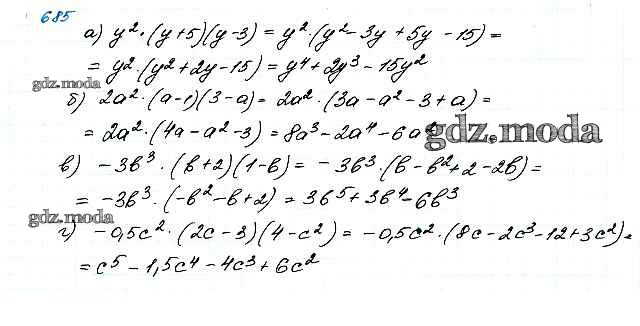 685
а) y²·(y+5)(y-3) = y²·(y²-3y+5y-15)=
= y²·(y²+2y-15) = y⁴+2y³-15y²
gdz.moda
б) 2a²·(a-1)(3-a)= 2a²·(3a-a²-3+a)=
= 2a²·(4a-a²-3)=8a³-2a⁴-6a²
gdz.moda
в) -3b³·(b+2)(1-b)= -3b³·(b-b²+2-2b)=
= -3b³·(-b²-b+2) = 3b⁵+3b⁴-6b³
gdz.moda
г) -0,5c²·(2c-3)(4-c²) = -0,5c²·(8c-2c³-12+3c²)=
= c⁵-1,5c⁴-4c³+6c²